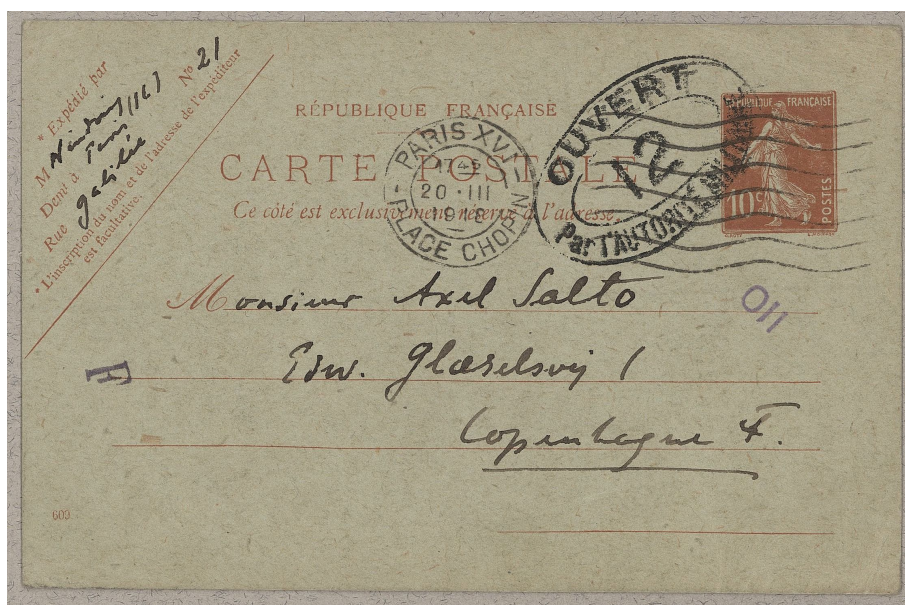 * Expédié par
M
Demt à Paris (16)
Rue galilée N° 21
* L'inscription du nom et de l'adresse de l'expéditeur
est facultative.
RÉPUBLIQUE FRANÇAISE
CARTE POSTALE
Ce côté est exclusivement réservé à l'adresse.
PARIS-XVI
1745
20 - III
PLACE CHOPIN
OUVERT
12
Par l'AUTORITÉ MILITAIRE
REPUBLIQUE FRANÇAISE
10c
POSTES
Monsieur Axel Salto
011
Edw. Glæselsvej 1
F
Copenhague F.
609